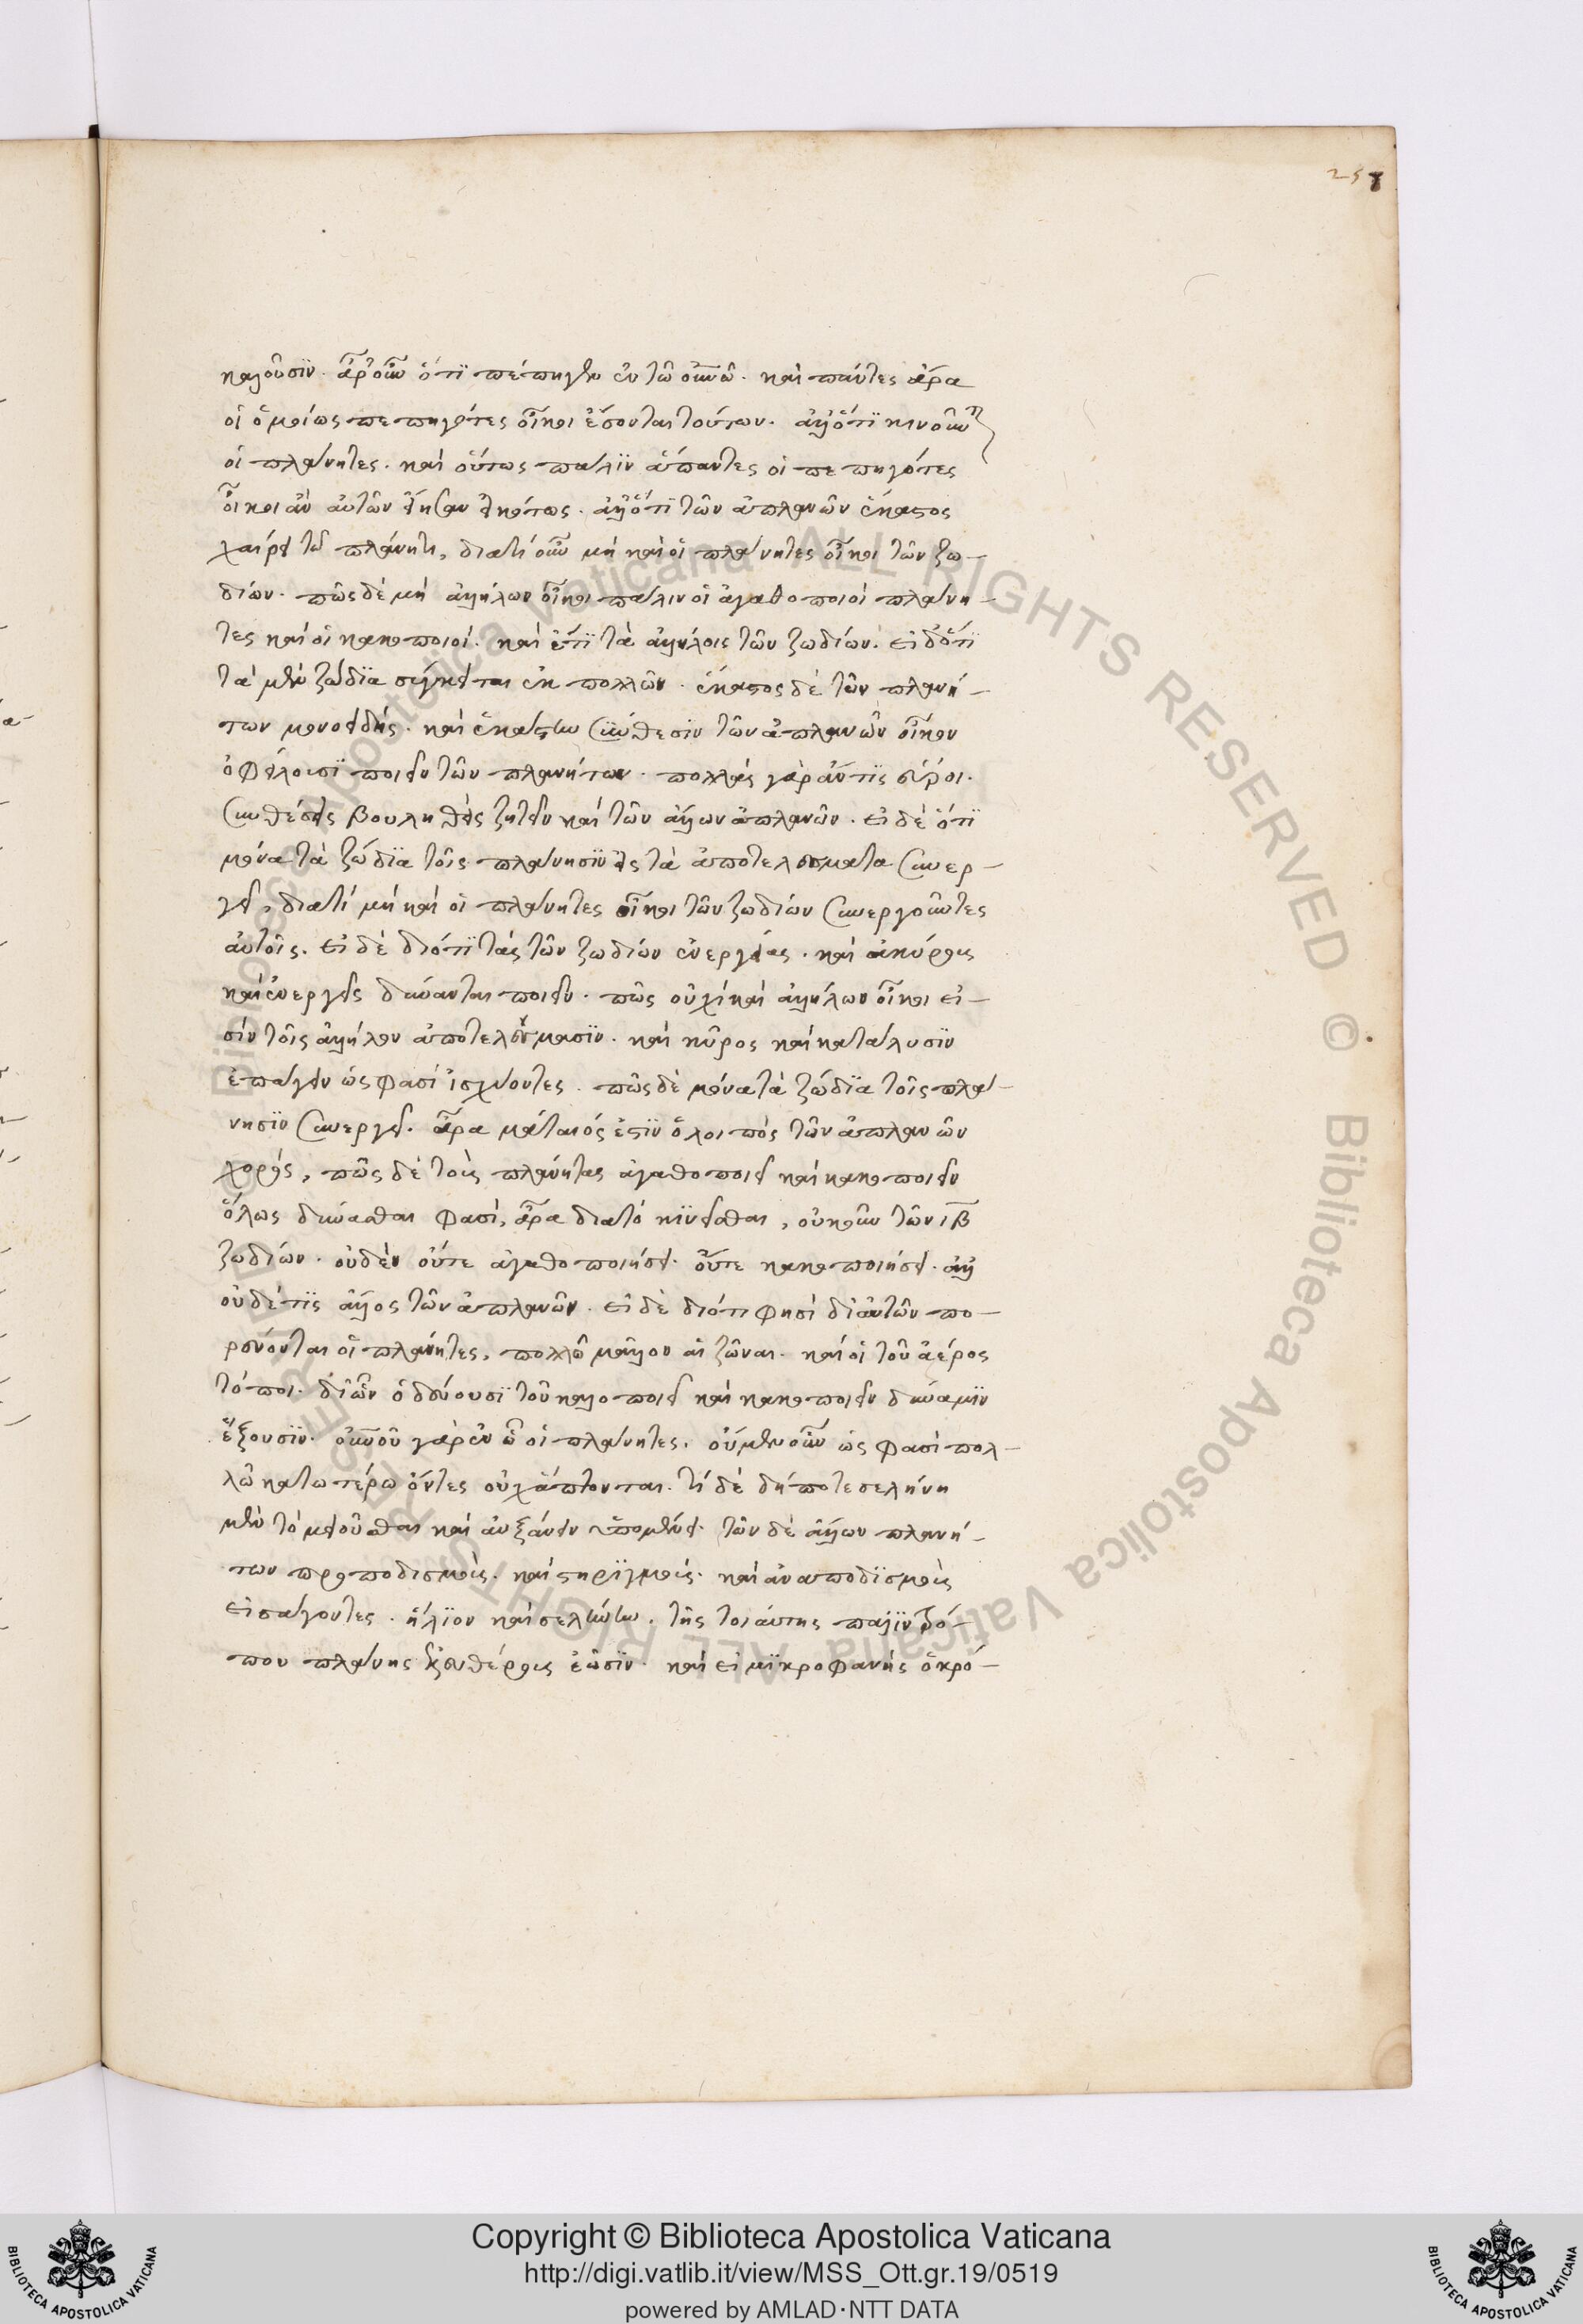 257
καλοῦσϊν. ἆρ' οὖν ὅτϊ πέπηγεν ἐν τῶ οὐνῶ. καὶ πάντες ἄρα
οἱ ὁμοίως πεπηγότες οἶκοι ἔσονται τούτων. ἀλλ' ὅτϊ κινοῦνται
οἱ πλάνητες. καὶ οὕτως πάλϊν ἅπαντες οἱ πεπηγότες
οἶκοι ἂν αὐτῶν εἴησαν εἰκότως. ἀλλ' ὅτϊ τῶν ἀπλανῶν ἕκαστος
χαίρει τῶ πλάνητι, διατί οὖν μὴ καὶ οἱ πλάνητες οἶκοι τῶν ζω-
δίων. πῶς δὲ μὴ ἀλλήλων οἶκοι πάλιν οἱ ἀγαθοποιοὶ πλάνη-
τες καὶ οἱ κακοποιοί. καὶ ἔτϊ τὰ ἀλλήλοις τῶν ζωδίων. εἰ δ' ὅτϊ
τὰ μὲν ζώδϊα σύγκειται ἐκ πολλῶν. ἕκαστος δὲ τῶν πλανή-
των μονοειδής. καὶ ἑκάστην σύνθεσϊν τῶν ἀπλανῶν οἶκον
ὀφείλουσϊ ποιεῖν τῶν πλανήτων. πολλὰς γὰρ ἄν τϊς εὕροι.
συνθέσεις βουληθεὶς ζητεῖν καὶ τῶν ἄλλων ἀπλανῶν. εἰ δὲ ὅτϊ
μόνα τὰ ζώδϊα τοῖς πλάνησϊν εἰς τὰ ἀποτελέσματα συνερ-
γεῖ, διατί μὴ καὶ οἱ πλάνητες οἶκοι τῶν ζωδίων συνεργοῦντες
αὐτοῖς. εἰ δὲ διότϊ τὰς τῶν ζωδίων ἐνεργείας. καὶ ἀκύρους
καὶ ἐνεργεῖς δύνανται ποιεῖν. πῶς οὐχὶ καὶ ἀλλήλων οἶκοι εἰ-
σὶν τοῖς ἀλλήλων ἀποτελέσμασϊν. καὶ κῦρος καὶ κατάλυσϊν
ἐπάγειν ὡς φασὶ ἰσχύοντες. πῶς δὲ μόνα τὰ ζώδϊα τοῖς πλά-
νησϊν συνεργεῖ. ἆρα μάταιός ἐστϊν ὁ λοιπὸς τῶν ἀπλανῶν
χορός, πῶς δὲ τοὺς πλάνητας ἀγαθοποιεῖν καὶ κακοποιεῖν
ὅλως δύνασθαι φασὶ, ἆρα διὰ τὸ κϊνεῖσθαι, οὐκοῦν τῶν ιβ
ζωδίων. οὐδὲν οὔτε ἀγαθοποιήσει. οὔτε κακοποιήσει. ἀλλ'
οὐδέ τϊς ἄλλος τῶν ἀπλανῶν. εἰ δὲ διότι φησὶ δι' αὐτῶν πο-
ρεύονται οἱ πλάνητες, πολλῶ μᾶλλον αἱ ζῶναι. καὶ οἱ τοῦ ἀέρος
τόποι. δι' ὧν ὁδεύουσϊ τοῦ καλοποιεῖν καὶ κακοποιεῖν δύναμϊν
ἕξουσϊν. οὐνοῦ γὰρ ἐν ὧ οἱ πλάνητες. οὐ μὲν οὖν ὡς φασὶ πολ-
λῶ κατωτέρω ὄντες οὐχ ἅπτονται. τί δὲ δήποτε σελήνη
μὲν τὸ μειοῦσθαι καὶ αὐξάνειν ἀπομένει. τῶν δὲ ἄλλων πλανή-
των προποδισμοὺς. καὶ στηρϊγμούς. καὶ ἀναποδϊσμοὺς
εἰσάγοντες. ἥλϊον καὶ σελήνην. τῆς τοιαύτης παλϊντρό-
που πλάνης ἐλευθέρους ἐῶσϊν. καὶ εἰ μϊκροφανὴς ὁ κρό-
Copyright © Biblioteca Apostolica Vaticana
http://digi.vatlib.it/view/MSS_Ott.gr.19/0519
powered by AMLAD·NTT DATA